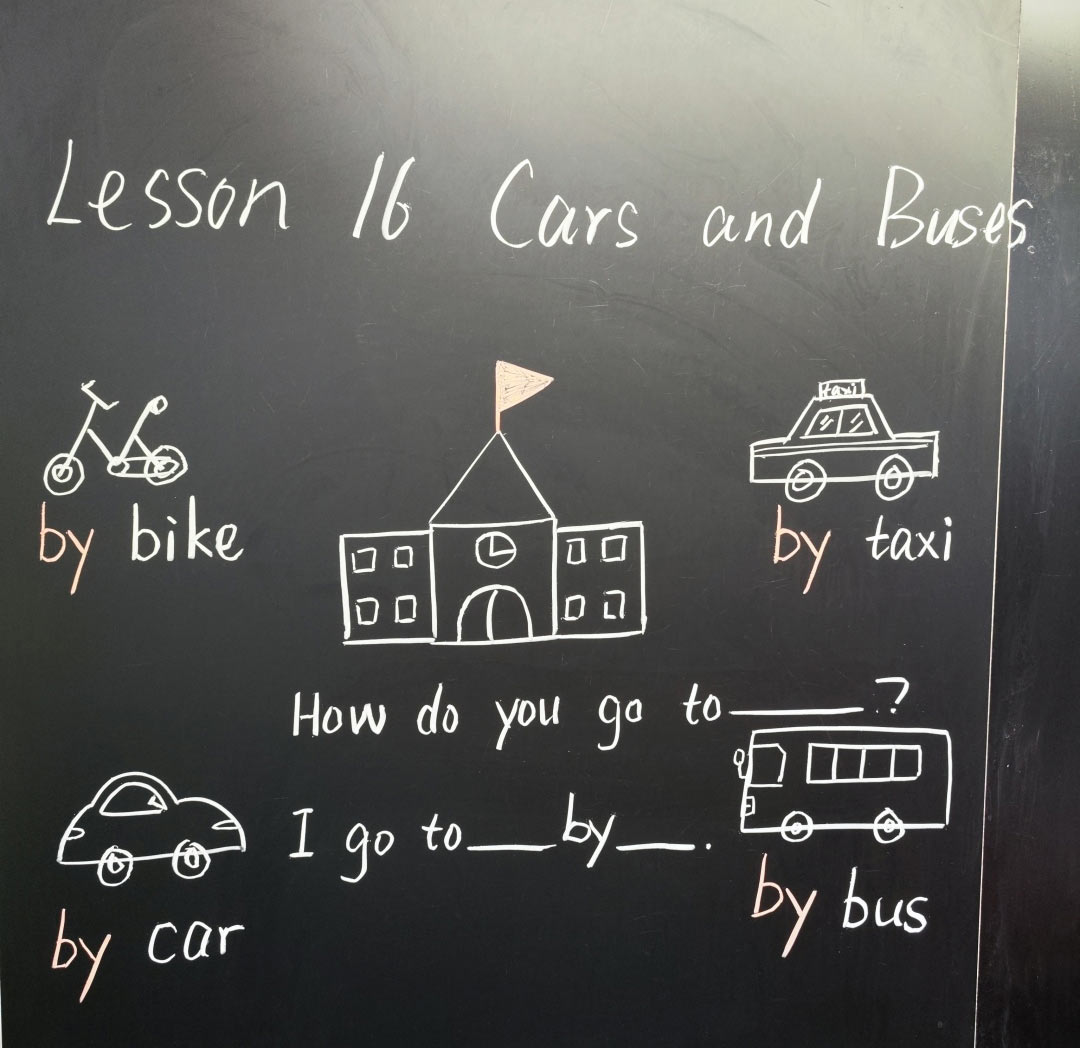 Lesson 16 Cars and Buses
taxi
by bike
by taxi
How do you go to_____?
I go to___by___.
by car
by bus